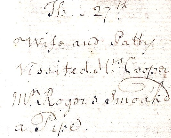 The 27th
Wife and Patty
Visited Mrs Cooper
Mr Rogers Smoak'd
a Pipe.